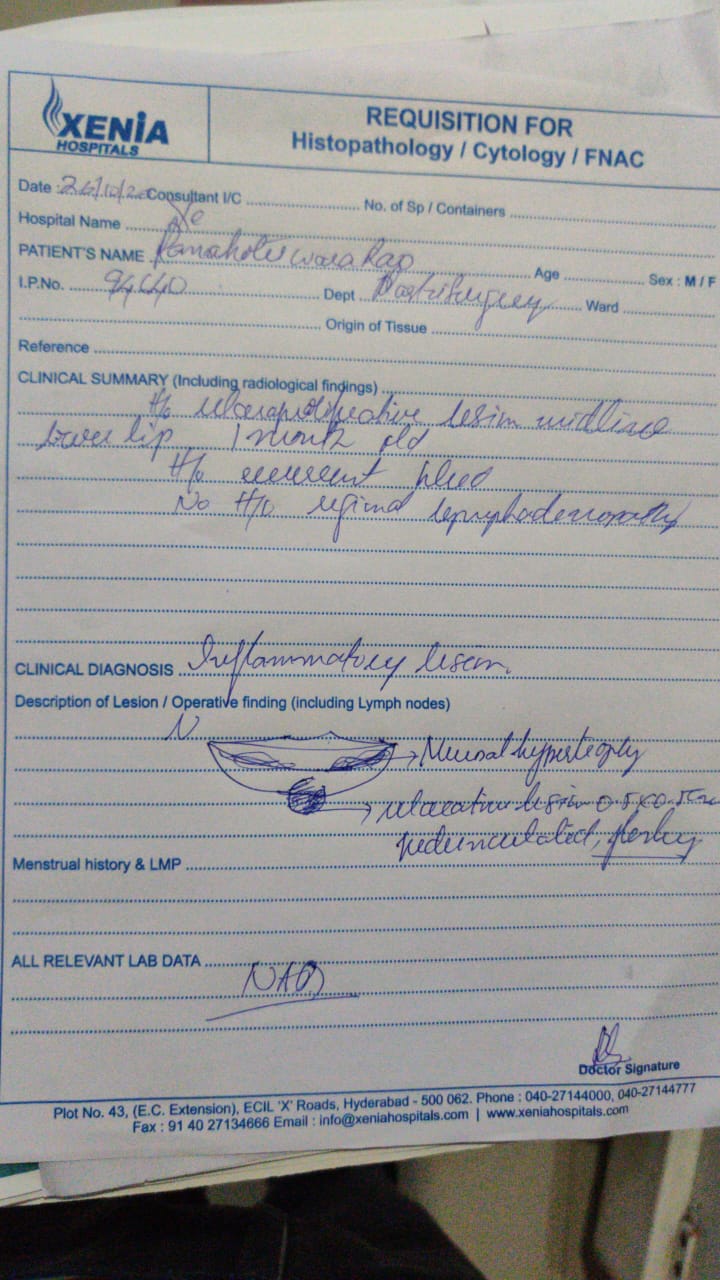 XENiA
HOSPITALS
REQUISITION FOR
Histopathology / Cytology / FNAC
Date : Consultant I/C No. of Sp / Containers
Hospital Name
PATIENT'S NAME Age Sex : M / F
I.P.No. Dept Ward
Origin of Tissue
Reference
CLINICAL SUMMARY (Including radiological findings)
H/o ulceroproliferative lesion midline
lower lip 1 month old
H/o recurrent bleed
No H/o regional lymphadenopathy
CLINICAL DIAGNOSIS Inflammatory lesion.
Description of Lesion / Operative finding (including Lymph nodes)
N
Mucosal hypertrophy
lesion 0.5x0.5cm
pedunculated, fleshy
Menstrual history & LMP
ALL RELEVANT LAB DATA
NAD
Doctor Signature
Plot No. 43, (E.C. Extension), ECIL 'X' Roads, Hyderabad - 500 062. Phone : 040-27144000, 040-27144777
Fax : 91 40 27134666 Email : info@xeniahospitals.com | www.xeniahospitals.com